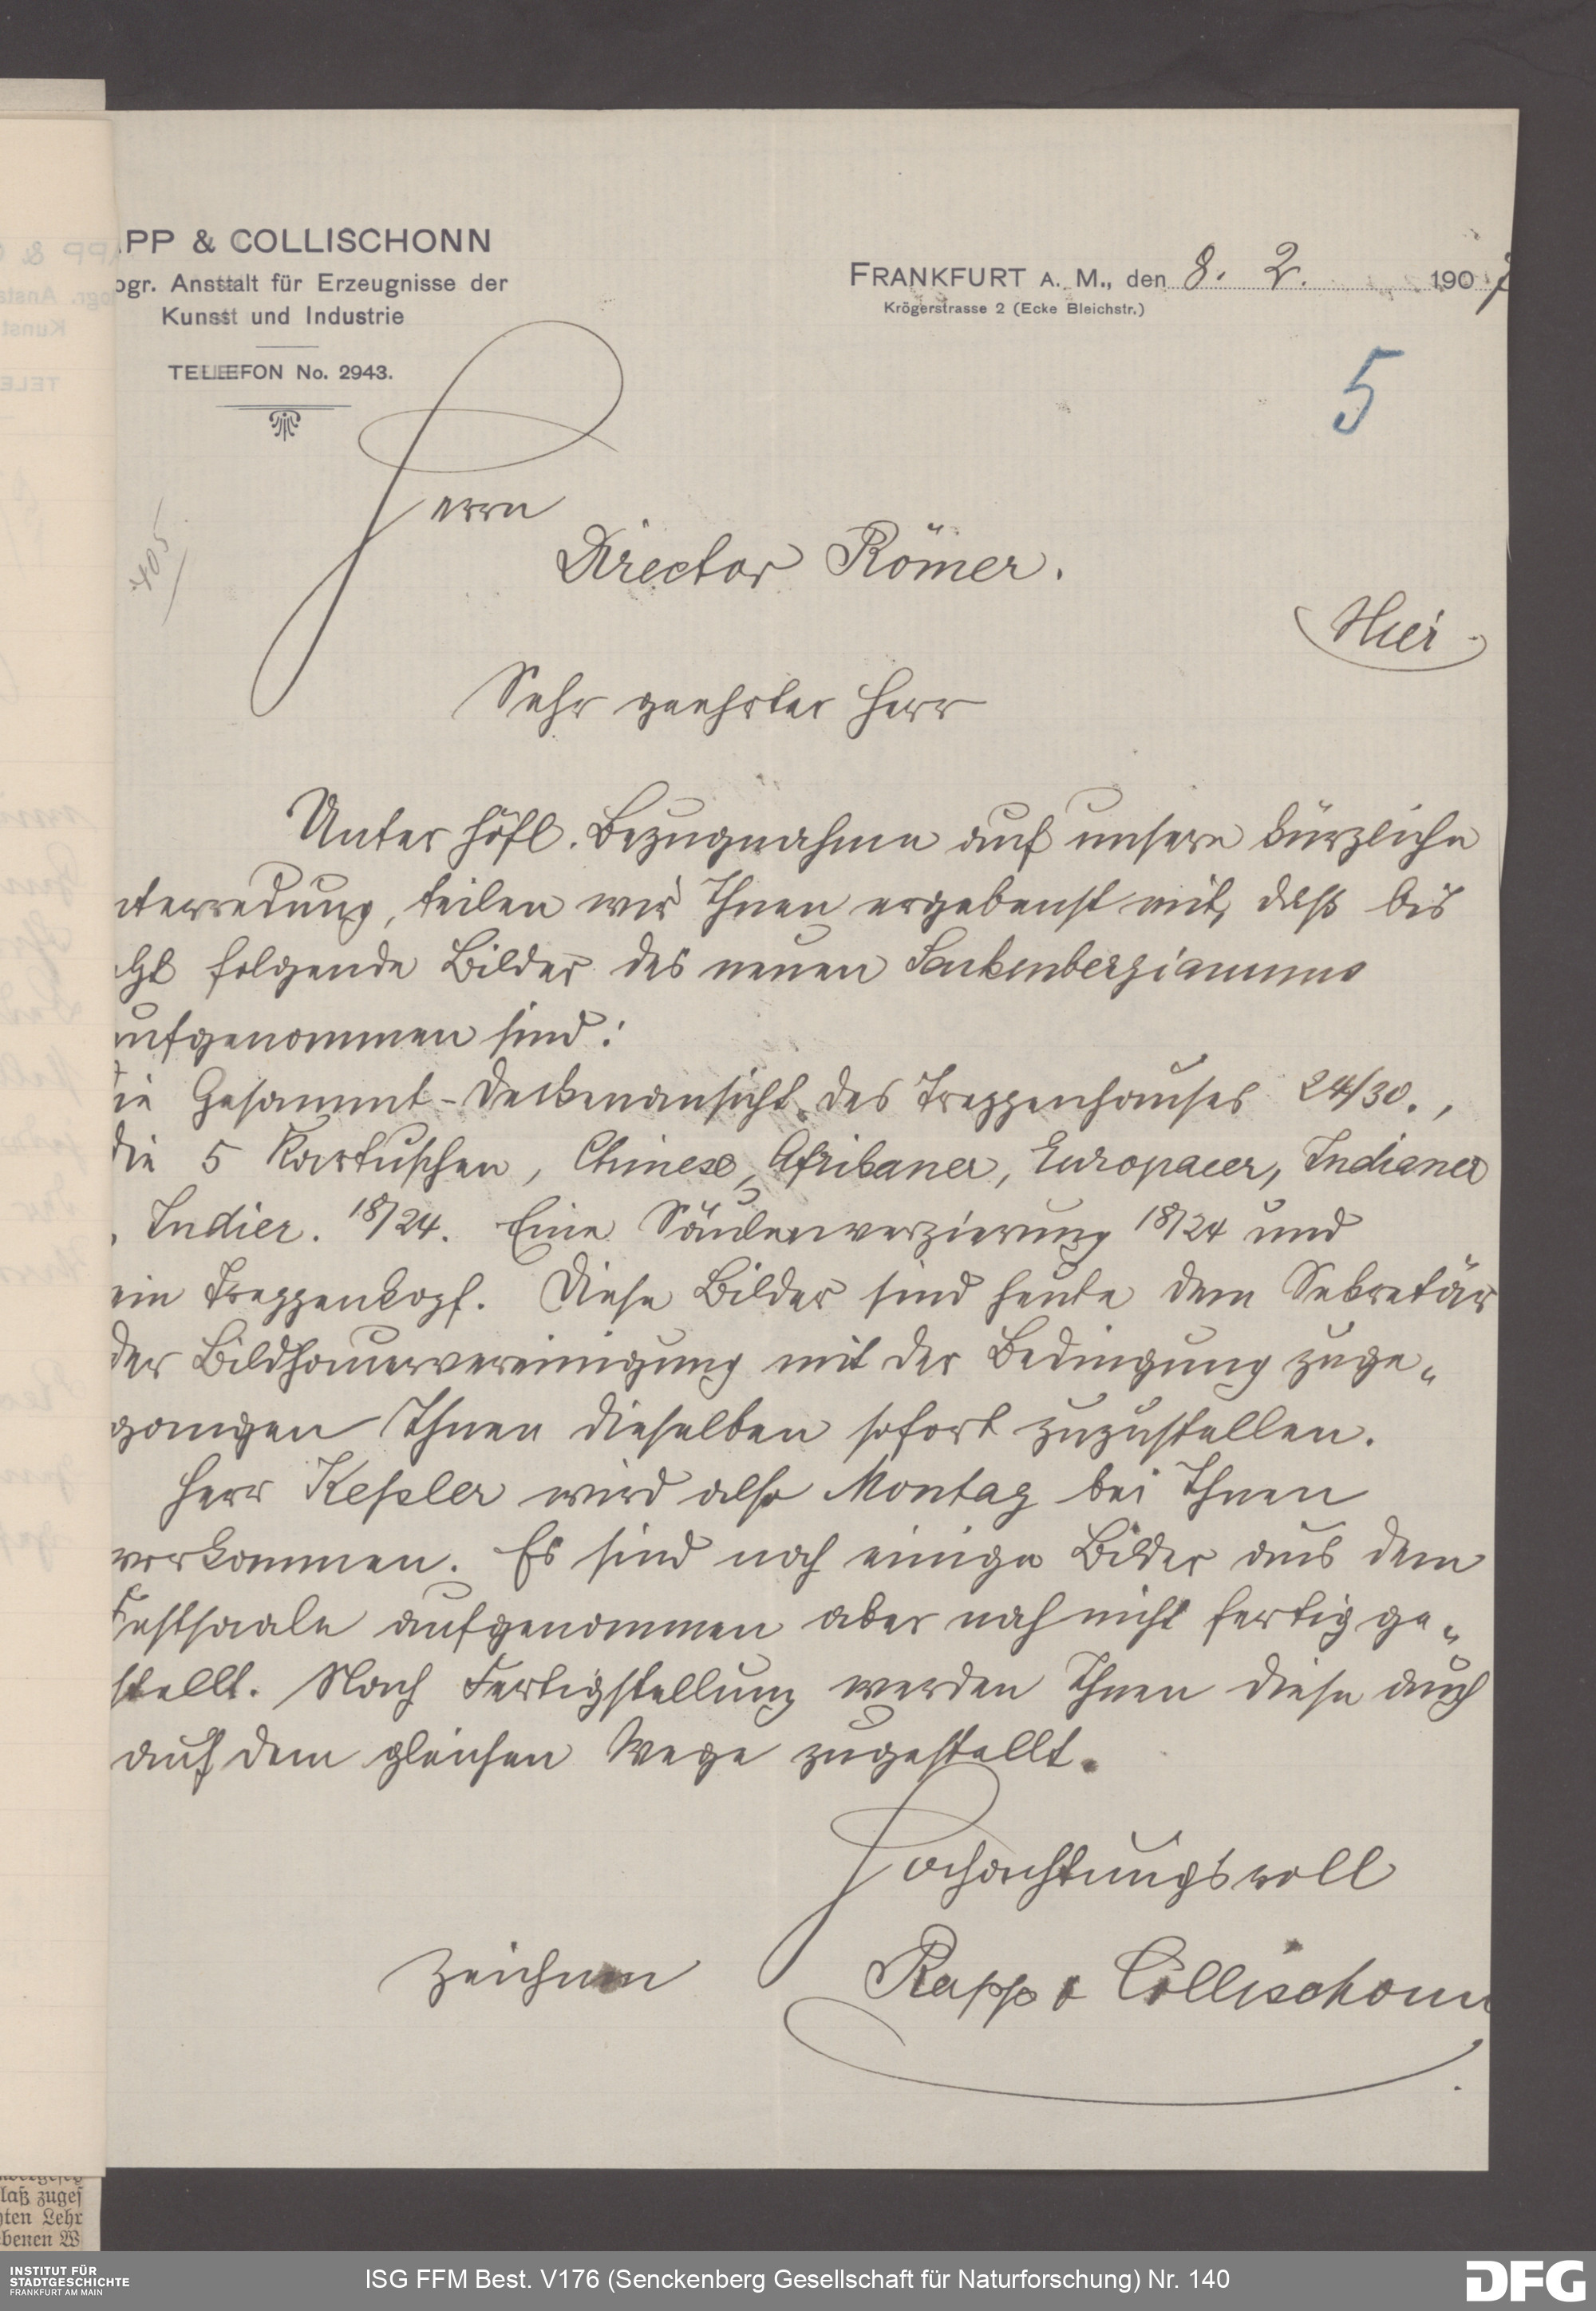 APP & COLLISCHONN
ogr. Anstalt für Erzeugnisse der
Kunst und Industrie
TELEFON No. 2943.
FRANKFURT A. M., den 8. 2. 1907
Krögerstrasse 2 (Ecke Bleichstr.)
5
405
Herrn
Director Römer.
Hier.
Sehr geehrter Herr
Unter höfl. Bezugnahme auf unsere kürzliche
nterredung, teilen wir Ihnen ergebenst mit, daß bis
tzt folgende Bilder des neuen Senkenbergianums
aufgenommen sind:
die Gesammt-Deckenansicht des Treppenhauses 24/30.,
die 5 Kartuschen, Chinese, Afrikaner, Europaeer, Indianer
, Indier. 18/24. Eine Säulenverzierung 18/24 und
ein Treppenkopf. Diese Bilder sind heute dem Sekretär
der Bildhauervereinigung mit der Bedingung zuge„
gangen Ihnen dieselben sofort zuzustellen.
Herr Keßler wird also Montag bei Ihnen
vorkommen. Es sind noch einige Bilder aus dem
Festsaale aufgenommen aber noch nicht fertig ge„
stellt. Nach Fertigstellung werden Ihnen diese auch
auf dem gleichen Wege zugestellt.
Hochachtungsvoll
zeichnen Rapp & Collischonn
laß zuges
ten Lehr
benen W
INSTITUT FÜR
STADTGESCHICHTE
FRANKFURT AM MAIN
ISG FFM Best. V176 (Senckenberg Gesellschaft für Naturforschung) Nr. 140
DFG